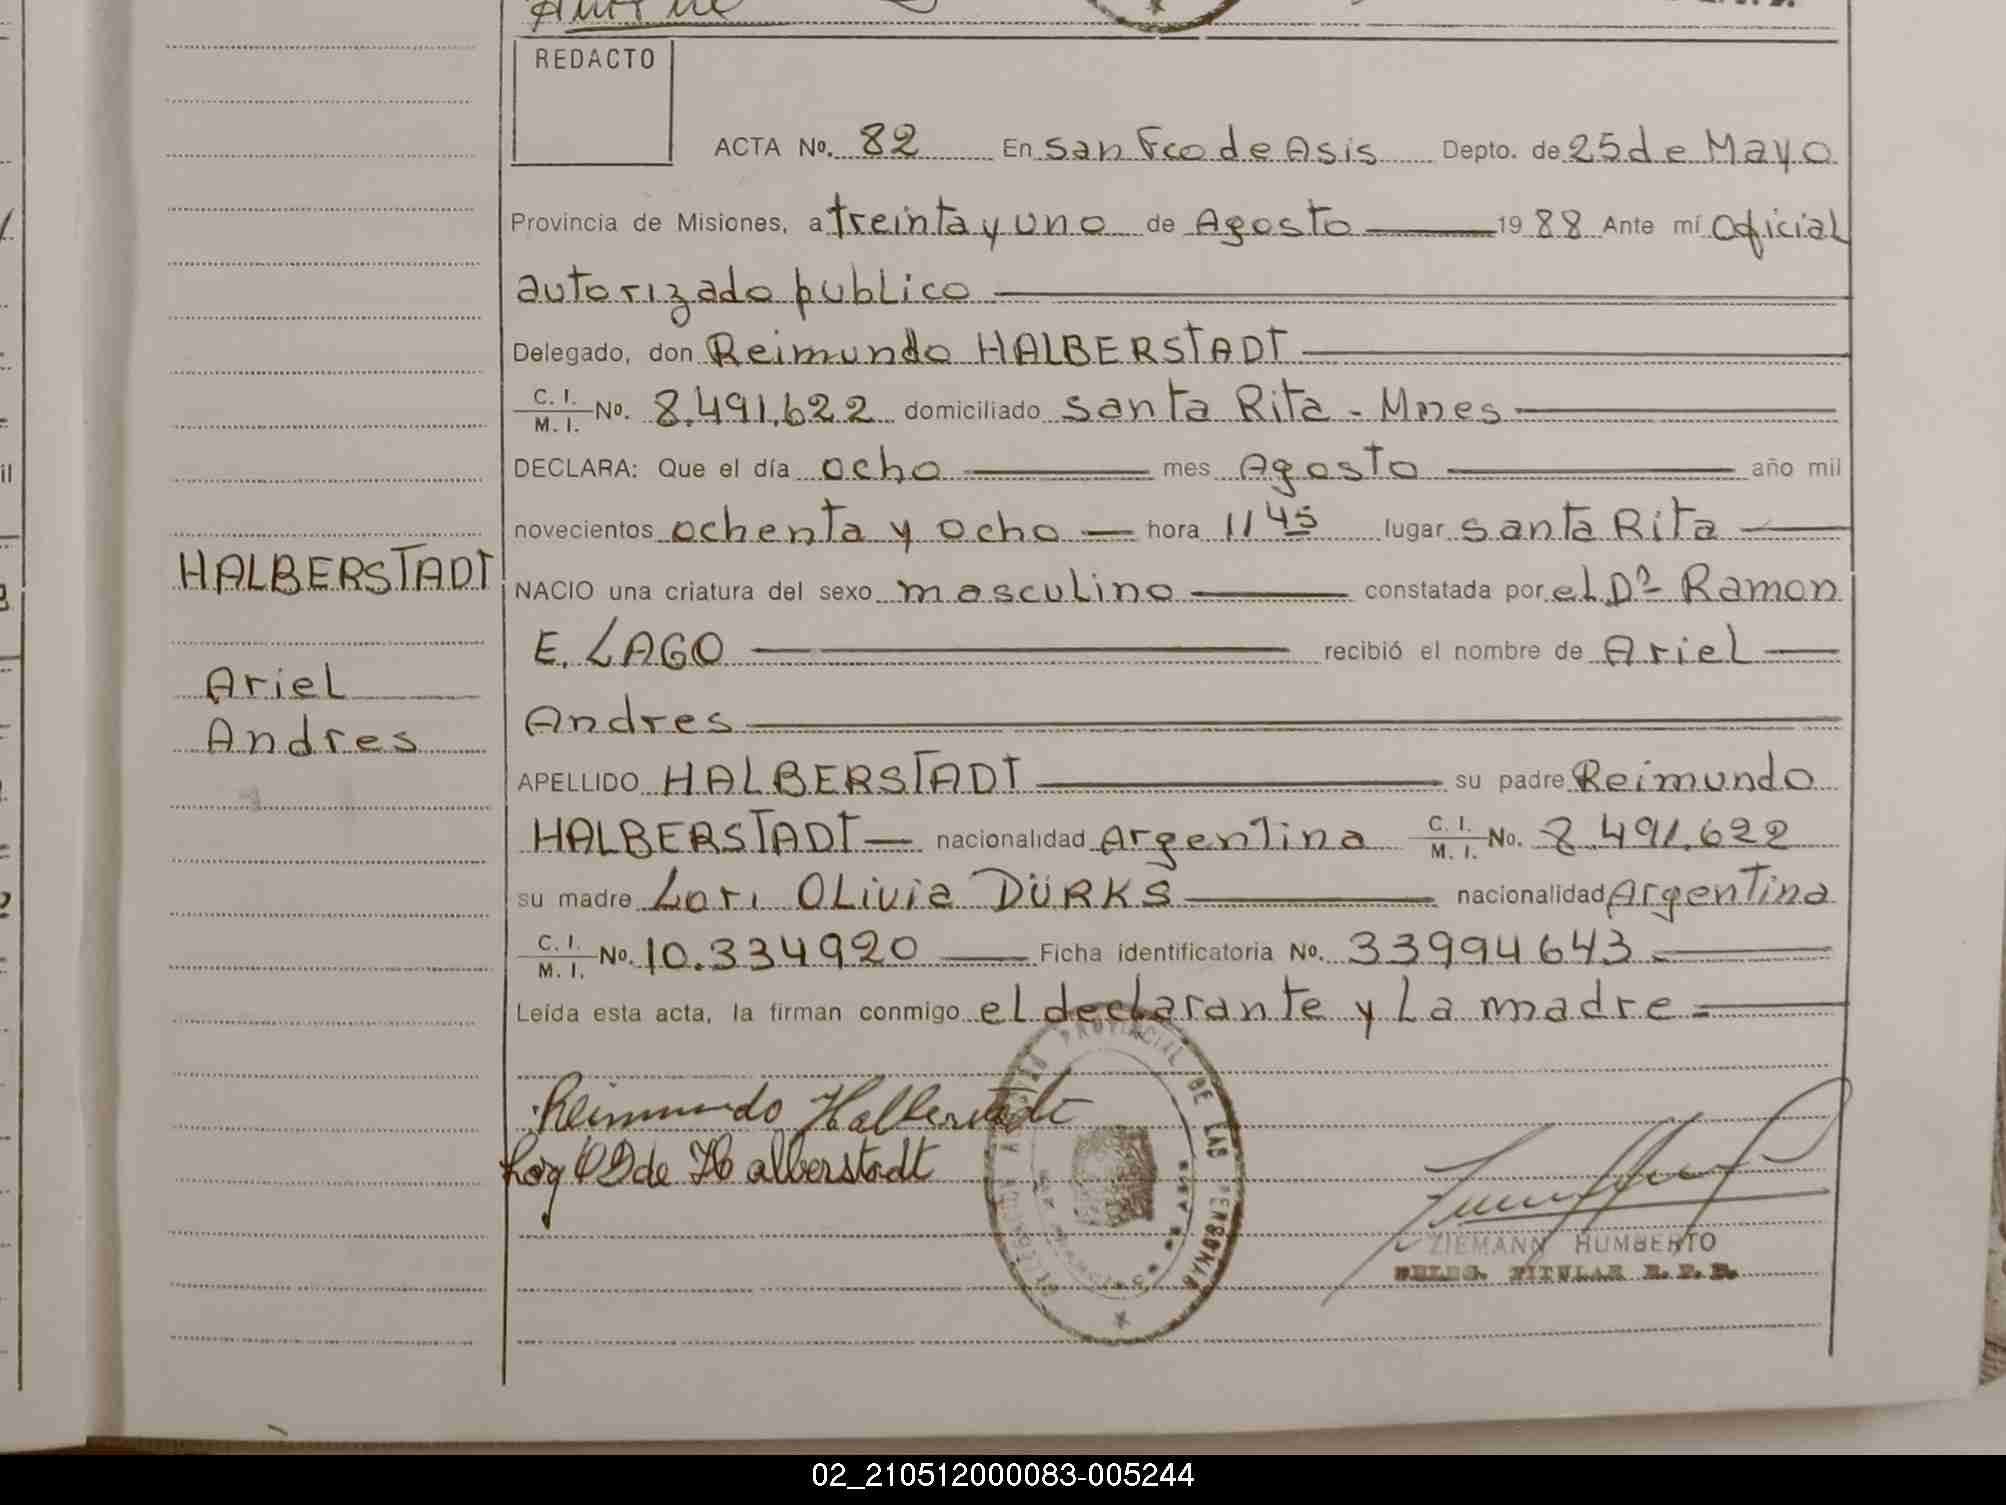 REDACTO
ACTA No. 82 En San Fco de Asis Depto. de 25 de Mayo
Provincia de Misiones, a treinta y uno de Agosto 1988 Ante mí Oficial
autorizado publico
Delegado, don Reimundo HALBERSTADT
C. I. / M. I. No. 8.491.622 domiciliado Santa Rita - Mnes
DECLARA: Que el día ocho mes Agosto año mil
novecientos ochenta y ocho hora 11 45 lugar Santa Rita
HALBERSTADT
NACIO una criatura del sexo masculino constatada por el Dr Ramon
E. LAGO recibió el nombre de Ariel
Ariel
Andres
Andres
APELLIDO HALBERSTADT su padre Reimundo
HALBERSTADT nacionalidad Argentina C. I. / M. I. No. 8.491.622
su madre Lori OLivia DÜRKS nacionalidad Argentina
C. I. / M. I. No. 10.334920 Ficha identificatoria No. 33994643
Leída esta acta, la firman conmigo el declarante y La madre
Reimundo Halberstadt
de Halberstadt
PROVINCIAL DE LAS PERSONAS
ZIEMANN HUMBERTO
DELEG. TITULAR R. P. P.
02_210512000083-005244